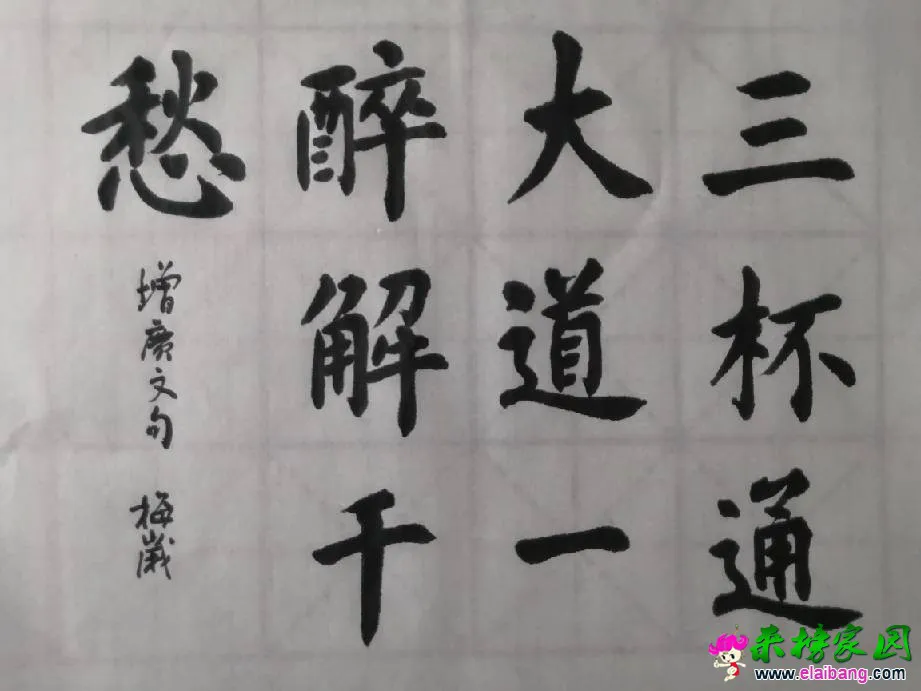 三杯通
大道一
醉解千
愁
增廣文句 梅崴
来榜家园
www.elaibang.com